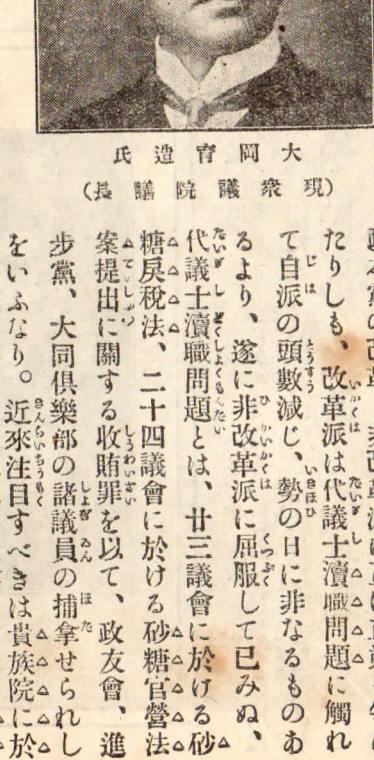 大岡育造氏
(現衆議院議長)
たりしも、改革派は代議士瀆職問題に觸れ
て自派の頭數減じ、勢の日に非なるものあ
るより、遂に非改革派に屈服して已みぬ、
代議士瀆職問題とは、廿三議會に於ける砂
糖戾稅法、二十四議會に於ける砂糖官營法
案提出に關する收賄罪を以て、政友會、進
步黨、大同俱樂部の諸議員の捕拿せられし
をいふなり。近來注目すべきは貴族院に於